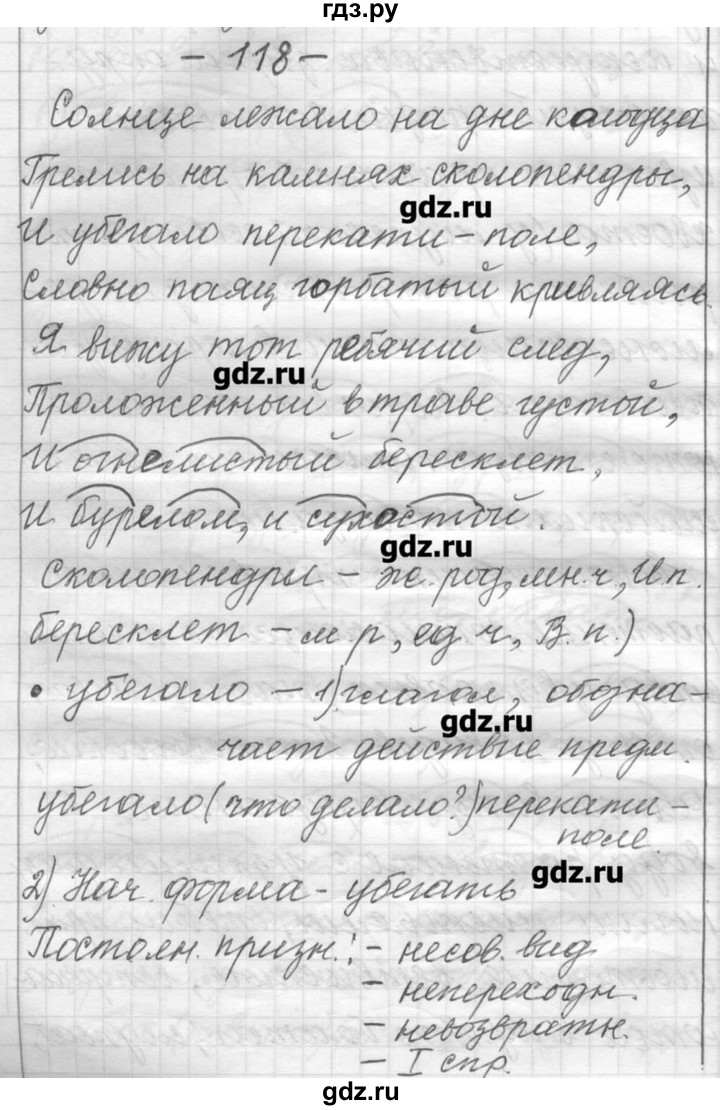 гдз.ру
- 118 -
Солнце лежало на дне колодца
Грелись на камнях сколопендры,
gdz.ru
И убегало перекати-поле,
Словно паяц горбатый кривляясь.
Я вижу тот ребячий след,
gdz.ru
Проложенный в траве густой,
И огнелистый бересклет,
И бурелом, и сухостой.
gdz.ru
Сколопендры - ж. род, мн.ч, И.п.
бересклет - м.р, ед.ч, В.п.)
• убегало - 1) глагол, обозна-
gdz.ru
чает действие предм.
убегало (что делало?) перекати-
поле.
gdz.ru
2) Нач. форма - убегать
Постоян. призн.: - несов. вид
- непереходн.
- невозвратн.
- I спр.
gdz.ru